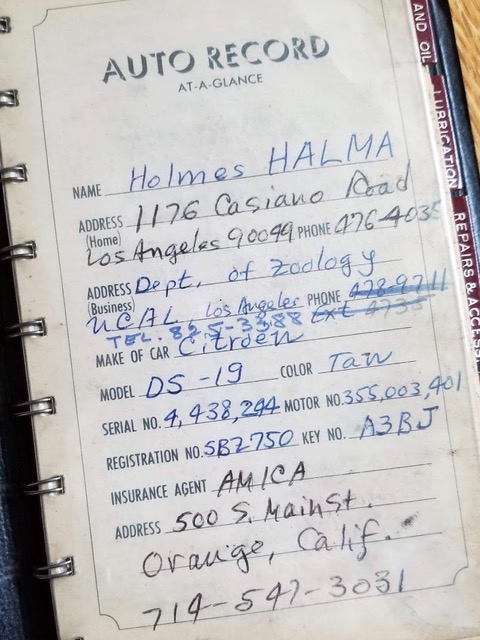 AUTO RECORD
AT-A-GLANCE
NAME Holmes HALMA
ADDRESS 1176 Casiano Road
(Home) Los Angeles 90049 PHONE 476-4035
ADDRESS Dept. of Zoology
(Business) UCAL, Los Angeles PHONE 478-9711
TEL. 825-3388 Ext 4735
MAKE OF CAR Citroen
MODEL DS-19 COLOR Tan
SERIAL NO. 4,438,244 MOTOR NO. 355,003,401
REGISTRATION NO. SBZ750 KEY NO. A3BJ
INSURANCE AGENT AMICA
ADDRESS 500 S. Main St.
Orange, Calif.
714-547-3031
AND OIL
LUBRICATION
REPAIRS & ACCESS